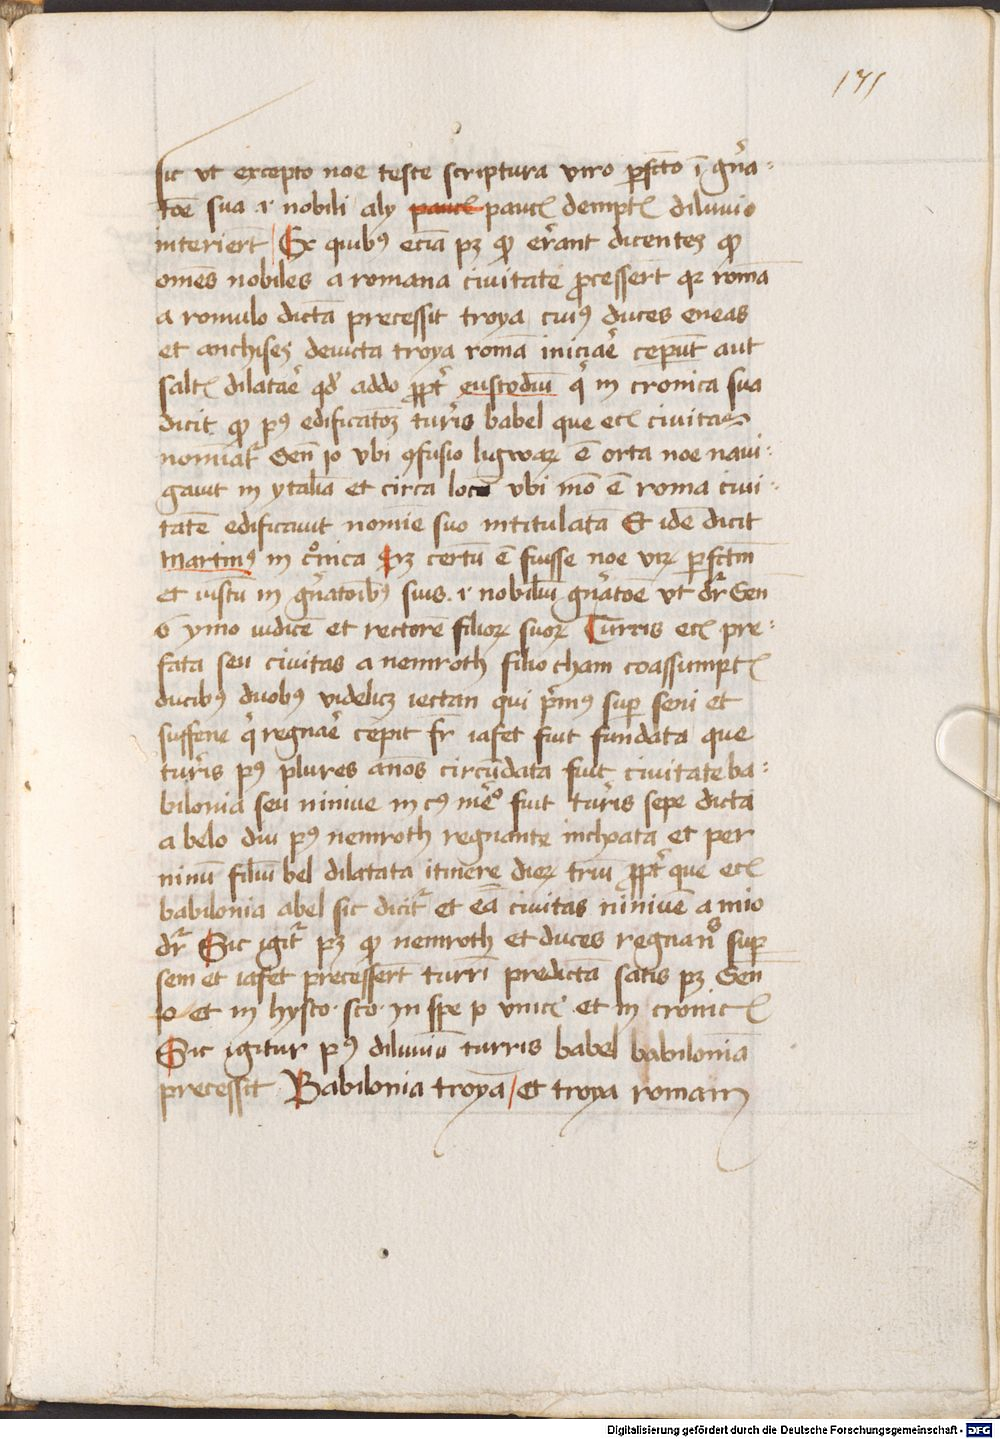 171
sic vt excepto noe teste scriptura viro ꝑfcto ī gn̄a-
tōe sua .i. nobili aly paucꝭ paucꝭ demptꝭ diluuio
interiert̄ Ex quibꝰ eciā pꝫ ꝙ er̄ant dicentes ꝙ
om̄es nobiles a romana ciuitate ꝓcessert̄ qꝛ romā
a romulo dictā precessit troya cuiꝰ duces eneas
et anchises deuicta troya romā iniciar̄e ceperūt aut
saltꝭ dilatar̄e qd̄ addo ꝓpt̄ eustodiū q̄ in cronica sua
dicit ꝙ pꝰ edificatōꝫ turr̄is babel que ecꝭ ciuitas
nomīat᷑ Gen̄ 10 vbi ꝯfusio ligwaꝝ ē orta noe naui-
gauit in ytaliā et circa locū vbi mō ē roma ciui-
tatē edificauit nomīe suo intitulatā Et idē dicit
Martinꝰ in cͦnica Prꝫ certū ē fuisse noe virꝝ ꝑfctm̄
et iustū in gn̄atoībꝰ suis .i. nobiliū gn̄atōe vt dr̄ Gen̄
6 ymo iudicē et rectorē filioꝝ suoꝝ Turris ecꝭ pre-
fata seu ciuitas a nemroth filio cham coassumptꝭ
ducibꝰ duobꝰ videlicꝫ iectan qui p̄mꝰ suꝑ seni et
suffene q̄ regnar̄e cepit fr̄ iafet fuit fundata que
turr̄is pꝰ plures annos circūdata fuit ciuitate ba-
bilonia seu niniue in cꝰ mēͦ fuit turr̄is sepe dicta
a belo diu pꝰ nemroth regnante inchoata et per
ninū filiū bel dilatata itinere dieꝝ triū ꝓpt̄ que ecꝭ
babilonia abel sic dicit᷑ et eā ciuitas niniuē a nīo
dr̄ Sic igit᷑ pꝫ ꝙ nemroth et duces regnanͦs suꝑ
sem et iafet precessert̄ turrī predictā satis pꝫ Gen̄
10 et in hysto. sco. in spe p vnicꝭ et in cronicꝭ
Sic igitur pꝰ diluuiū turris babel babiloniā
precessit Babilonia troyā et troya romam
Digitalisierung gefördert durch die Deutsche Forschungsgemeinschaft - DFG